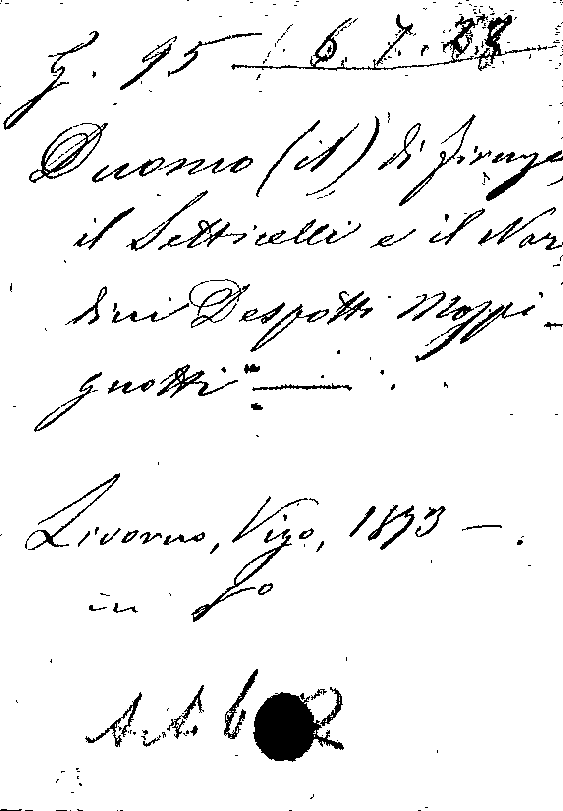 G. 95 6. 7. 28
Duomo (il) di Firenze,
il Setticelli e il Nar
dini Despotti Mospi-
gnotti —
Livorno, Vigo, 1873 —.
in 8o